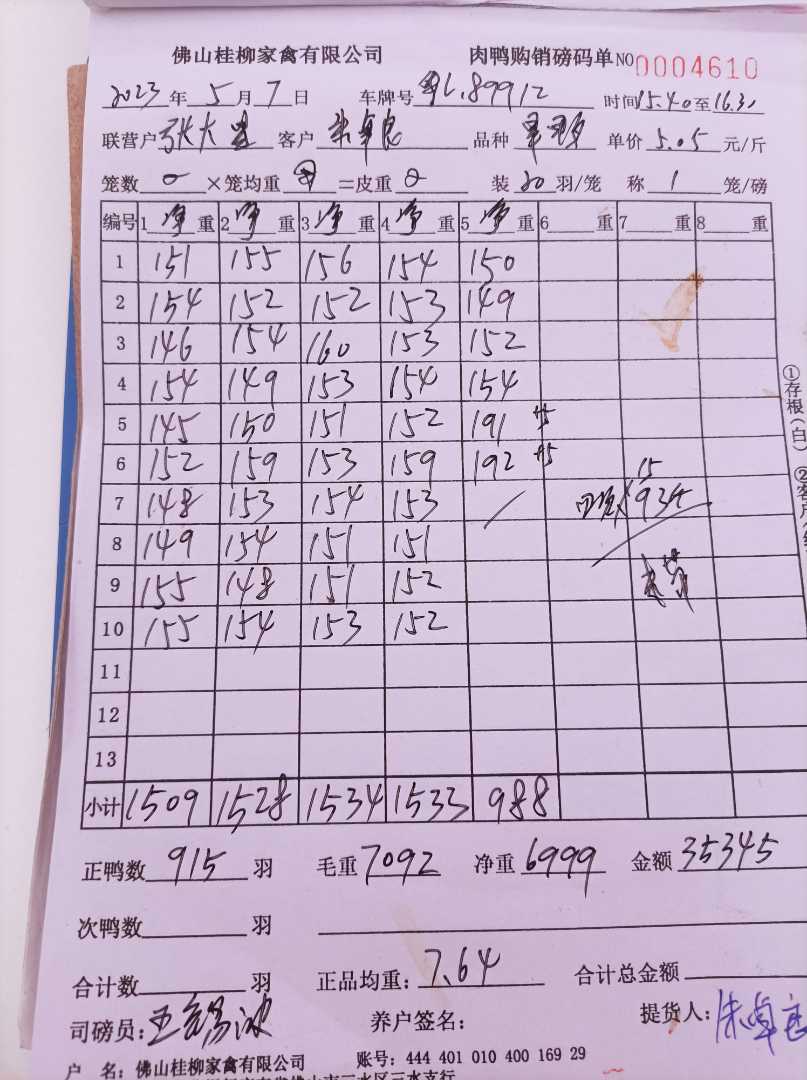 佛山桂柳家禽有限公司 肉鸭购销磅码单 NO 0004610
2023年5月7日 车牌号 L.89912 时间15.40至16.30
联营户 张大 客户 朱卓良 品种 单价 5.05 元/斤
笼数 0 ×笼均重 =皮重 0 装 20 羽/笼 称 1 笼/磅
编号 1 净 重 2 净 重 3 净 重 4 净 重 5 净 重 6 重 7 重 8 重
1 151 155 156 154 150
2 154 152 152 153 149
3 146 154 160 153 152
4 154 149 153 154 154
5 145 150 151 152 191 +5
6 152 159 153 159 192 +5
15
7 148 153 154 153 / 93斤
8 149 154 151 151
9 155 148 151 152
10 155 154 153 152
11
12
13
小计 1509 1528 1534 1533 988
正鸭数 915 羽 毛重 7092 净重 6999 金额 35345
次鸭数 羽
合计数 羽 正品均重: 7.64 合计总金额
司磅员: 王 养户签名: 提货人: 朱卓良
户 名: 佛山桂柳家禽有限公司 账号: 444 401 010 400 169 29
①存根(白) ②客户